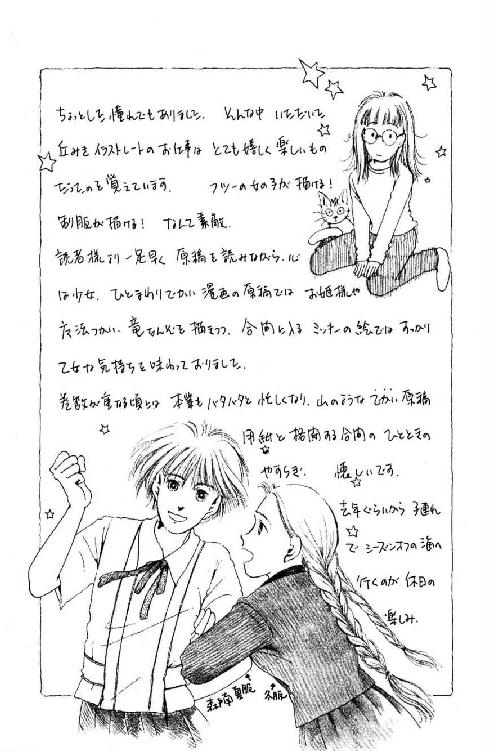 ちょっとした憧れでもありました。 そんな中 いただいた
丘ミキ イラストレートのお仕事は とても嬉しく楽しいもの
だったのを覚えています。 フツーの女の子が描ける!
制服が描ける! なんて素敵
読者様より一足早く 原稿を読みながら、心
は少女。 ひとまわりでかい 漫画の原稿では お姫様や
魔法つかい 竜なんぞを描きつつ、合間に入る ミッナーの絵では すっかり
乙女な気持ちを味わっておりました。
巻数が重なる頃には 本業もバタバタと忙しくなり、山のような でかい原稿
用紙と格闘する合間の ひとときの
やすらぎ。 懐しいです。
去年ぐらいから 子連れ
で シーズンオフの海へ
行くのが 休日の
楽しみ。
森南夏服
冬服